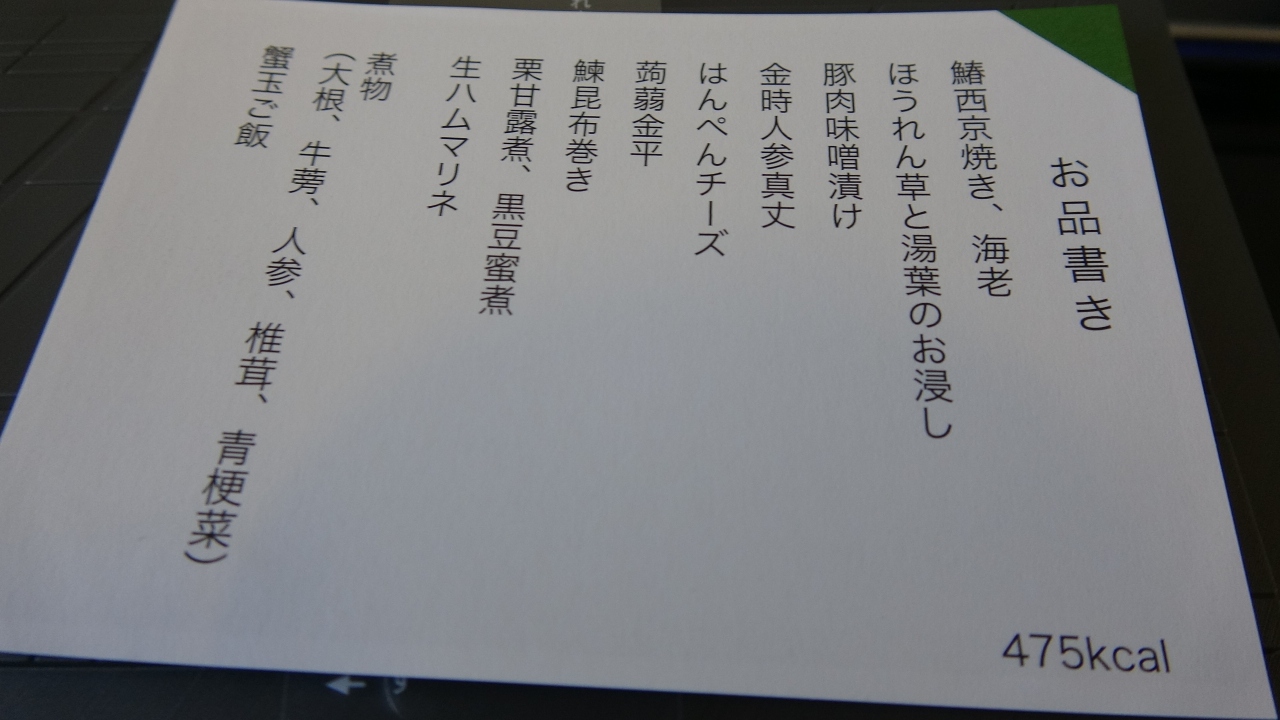 お品書き
鰆西京焼き、海老
ほうれん草と湯葉のお浸し
豚肉味噌漬け
金時人参真丈
はんぺんチーズ
蒟蒻金平
鰊昆布巻き
栗甘露煮、黒豆蜜煮
生ハムマリネ
煮物
（大根、牛蒡、人参、椎茸、青梗菜）
蟹玉ご飯
475kcal